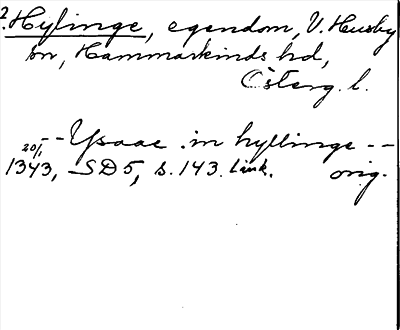 ?Hylinge, egendom, V. Husby
sn, Hammarkinds hd,
Österg. l.
-- Ysaac in hyllinge --
20/1 1343, SD 5, s. 143. Link. orig.